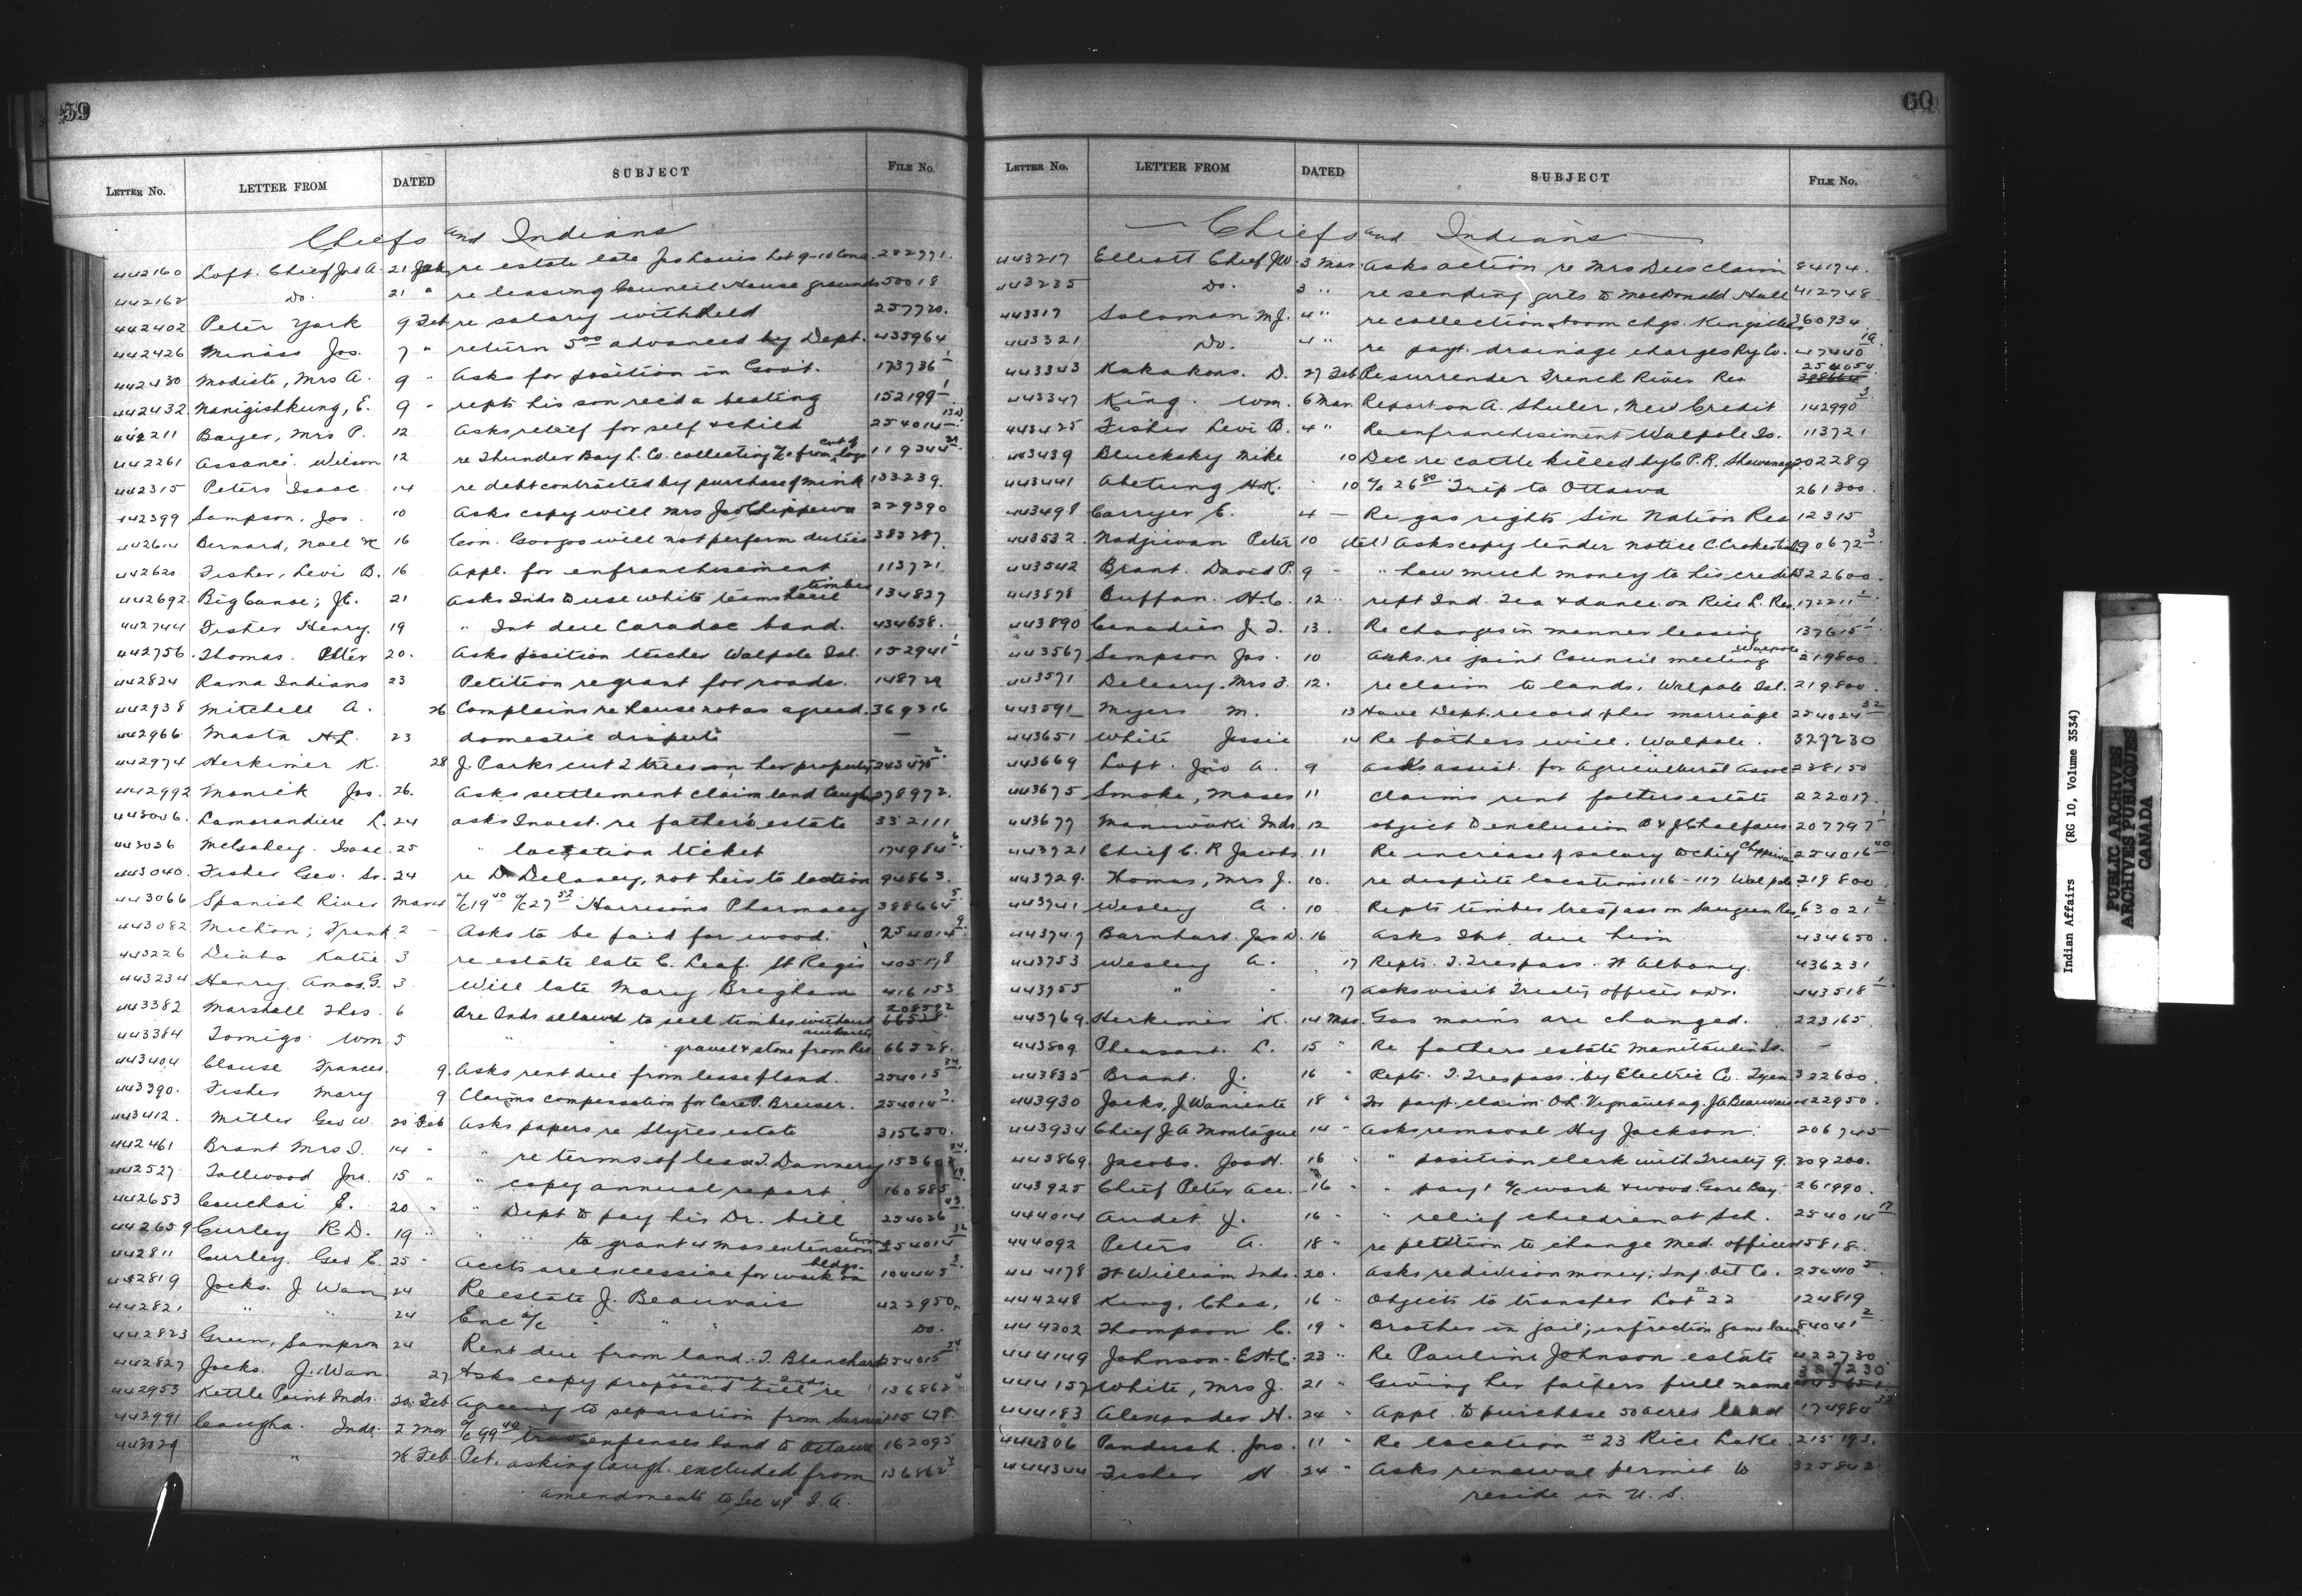 59
LETTER No. LETTER FROM DATED SUBJECT FILE No.
Chiefs and Indians
442160 Loft. Chief Jos A. 21 Jan re estate late Jos Lewis Lot 9-10 Con 282771.
442162 Do. 21 " re leasing Council House grounds 50018
442402 Peter York 9 Feb re salary withheld 257720.
442426 Miniss Jos. 7 " return 5.00 advanced by Dept. 435964
442430 Modiste, Mrs A. 9 " Asks for position in Govt. 173736-1
442432 Nanigishkung, E. 9 - repts his son rec'd a beating 152199-1
442211 Bayer, Mrs P. 12 Asks relief for self & child 254014
442261 Assance. Wilson 12 re Thunder Bay L. Co. collecting from cut of logs 119344
442315 Peters Isaac. 14 re debt contracted by purchase of mink 133239.
442399 Sampson, Jos. 10 Asks copy will Mrs Jno Chippewa 229390
442614 Bernard, Noel 16 Con. Googoo will not perform duties 383287.
442620 Fisher, Levi B. 16 Appl. for enfranchisement 113721
442692. Big Canoe; J.C. 21 Asks Inds to use white teams haul timber 134827
442744 Fisher Henry. 19 " Int due Caradoc band. 434658.
442756. Thomas. Peter 20. Asks position teacher Walpole Isl. 152941-1
442824 Rama Indians 23 Petition re grant for roads. 148729
442938 Mitchell A. 26 Complains re house not as agreed. 369316
442966 Masta H.L. 23 domestic dispute —
442974 Herkimer K. 28 J. Parks cut 2 trees on her property 243475-2
442992 Monick Jos. 26. Asks settlement claim land Caugh 278972.
443006. Lamorandiere L. 24 asks Invest. re father's estate 332111
443036 McGahey. Isaac. 25 " location ticket 174984-6
443040. Fisher Geo. Sr. 24 re D Delaney, not heir to location 94863.
443066 Spanish River March a/c 19.40 a/c 27.53 Harrisons Pharmacy 388664-5
443082 Michon; Frank 2 - Asks to be paid for wood. 254014-9
443226 Diabo Katie 3 re estate late C. Leaf. St Regis 405178
443234 Henry. Amos. G. 3 Will late Mary Bregham 416153
443382 Marshall Thos. 6 Are Inds allowed to sell timber without authority 208592 66528
443384 Tomigo. Wm 5 " " gravel & stone from Res. 66528.
443404 Clause Frances. 9. Asks rent due from lease of land. 254015-34
443390. Fisher Mary 9 Claims compensation for Care P. Breiser. 254014
443412. Miller Geo W. 20 Feb Asks papers re Styres estate 315650.
442461 Brant Mrs I. 14 - " re terms of lease T. Dannery 15360
442527 Tallwood Jno. 15 " " copy annual report 160885
442653 Couchai E. 20 - " Dept to pay his Dr. bill 254026-43
442659 Curley R.D. 19 " " " to grant 4 mos extension time 254014-32
442811 Curley. Geo E. 25 - Accts are excessive for work on bldgs. 104445-3
442819 Jocks. J Wan 24 Re estate J. Beauvais 422950.
442821 " " 24 Enc a/c " " " Do.
442823 Green, Sampson 24 Rent due from land. T. Blanchard 254015-34
442827 Jocks. J. Wan. 27 Asks copy proposed bill re removing Inds. 136862
442953 Kettle Point Inds. 20 Feb Agreeing to separation from Sarnia 115678.
442991 Caugha. Inds. 2 Mar a/c 99.40 trav expenses band to Ottawa 162095
443029 " 28 Feb Pet. asking Caugh. excluded from 136862
amendments to Sec 49 I. A.
60
LETTER No. LETTER FROM DATED SUBJECT FILE No.
Chiefs and Indians
443217 Elliott Chief J.W. 3 Mar. Asks action re Mrs Dees claim 84174.
443235 Do. 3 " re sending girls to MacDonald Hall 412748.
443317 Solomon M.J. 4 " re collection boom chgs. 360934
443321 Do. 4 " re payt. drainage charges Ry Co. 47440-1a
443343 Kakakons. D. 27 Feb. Re surrender French River Res 254054 388664
443347 King. Wm. 6 Mar. Report on A. Shuler, New Credit 142990-3
443425 Fisher Levi B. 4 " Re enfranchisement Walpole Is. 113721
443439 Bluesky Mike 10 Dec re cattle killed by C.P.R. Shawanaga 202289
443441 Abetung H.K. 10 a/c 26.80 Trip to Ottawa 261300.
443498 Carryer E. 4 - Re gas rights Six Nation Res 12315
443532. Nadjiwan Peter 10 (tel) Asks copy tender notice C. Croker 90672-3
443542 Brant. David P. 9 - " how much money to his credit 322600.
443878 Buffan. H.C. 12 " rept Ind. Tea & dance on Rice L. Res. 172211
443890 Canadien J. T. 13. Re changes in manner leasing 137615-1
443567 Sampson Jos. 10 Asks. re joint Council meeting Walpole 219800.
443571 Deleary. Mrs J. 12. re claim to lands, Walpole Isl. 219800.
443591 Myers M. 13 Have Dept. record of her marriage 254024-32
443651 White Jessie 14 Re fathers will. Walpole. 327230
443669 Loft. Jno A. 9 asks assist. for Agricultural Assoc 238150
443675 Smoke, Moses 11 Claims rent fathers estate 222017.
443677 Maniwaki Inds. 12 object to exclusion B & J. Chalfaus 207797-1
443721 Chief C. R Jacobs 11 Re increase of salary to Chief Chippewa 254016-40
443729. Thomas, Mrs J. 10. re dispute locations 116-117 Walpole 219800.
443741 Wesley A. 10 Repts timber trespass on Saugeen Res. 63021-2
443747 Barnhart. Jas D. 16 Asks Int. due him 434650.
443753 Wesley A. 17 Repts. T. Trespass. Ft Albany. 436231
443755 " - 17 Asks visit Treaty officer & Dr. 443518-1
443769. Herkimer K. 14 Mar. Gas mains are changed. 223165
443809 Pheasant. L. 15 " Re fathers estate Manitoulin Is. —
443835 Brant. J. 16 " Repts. T. Trespass. by Electric Co. Tyen 322600.
443930 Jocks, J. Waniente 18 " For payt claim O.L. Vignault ag. J.A. Beauvais 422950.
443934 Chief J. A Montague 14 " Asks removal Hy Jackson. 206745
443869. Jacobs. Jos H. 16 " " position clerk with Treaty 9. 309200.
443925 Chief Peter Ace. 16 " " payt a/c work & wood. Gore Bay 261990.
444014 Audet. J. 16 " " relief children at Sch. 254014-17
444092 Peters A. 18 " re petition to change Med. officer 15818.
444178 Ft William Inds. 20. Asks re division money; Imp. Oil Co. 254410-5
444248 King, Chas. 16 " Objects to transfer Lot # 22 124819
444302 Thompson C. 19 " Brother in jail; infraction game laws 84041-2
444149 Johnson. E.H.C. 23 " Re Pauline Johnson estate 422730
444157 White, Mrs J. 21 " Giving her fathers full name 327230 443651
444183 Alexander H. 24 " Appl. to purchase 50 acres land 174984-32
444306 Pandush. Jno. 11 " Re location # 23 Rice Lake 215193.
444344 Fisher H 24 " Asks renewal permit to 325842
reside in U. S.
Indian Affairs (RG 10, Volume 3534)
PUBLIC ARCHIVES
ARCHIVES PUBLIQUES
CANADA